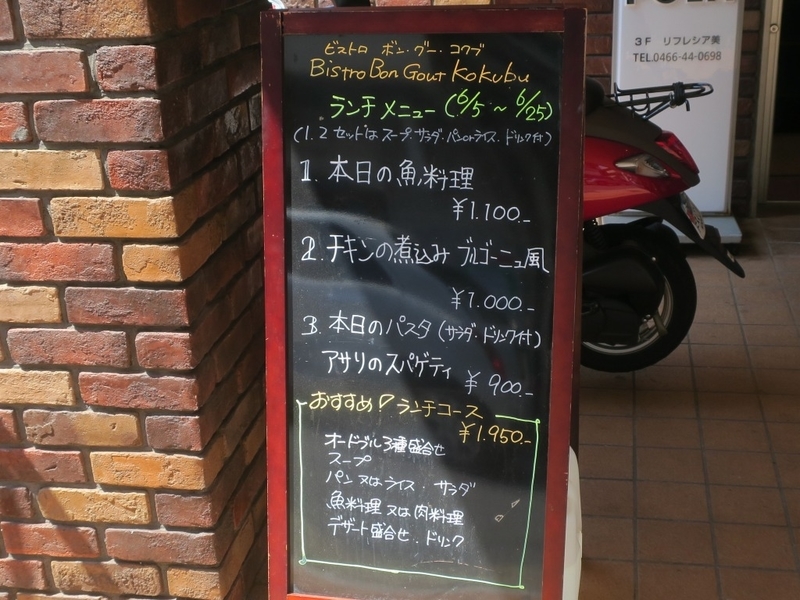 ビストロ ボン・グー・コクブ
Bistro Bon Gout Kokubu
ランチメニュー (6/5 ~ 6/25)
(1.2 セットは スープ.サラダ.パンorライス.ドリンク付)
1. 本日の魚料理
¥1.100.-
2. チキンの煮込み ブルゴーニュ風
¥1.000.-
3. 本日のパスタ (サラダ・ドリンク付)
アサリのスパゲティ ¥900.-
おすすめ! ランチコース
¥1.950.-
オードブル3種盛合せ
スープ
パン又はライス・サラダ
魚料理 又は肉料理
デザート盛合せ.ドリンク
3F リフレシア美
TEL.0466-44-0698